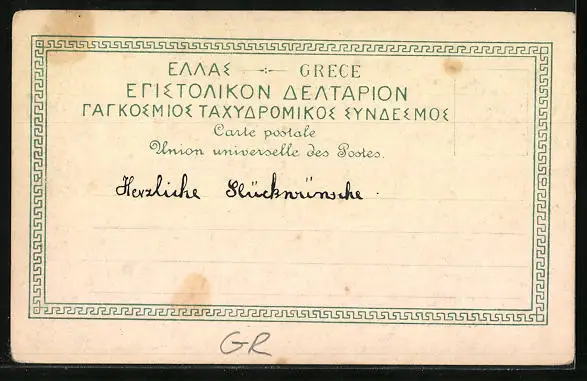 ΕΛΛΑΣ — GRECE
ΕΠΙΣΤΟΛΙΚΟΝ ΔΕΛΤΑΡΙΟΝ
ΠΑΓΚΟΣΜΙΟΣ ΤΑΧΥΔΡΟΜΙΚΟΣ ΣΥΝΔΕΣΜΟΣ
Carte postale
Union universelle des Postes.
Herzliche Glückwünsche.
GR